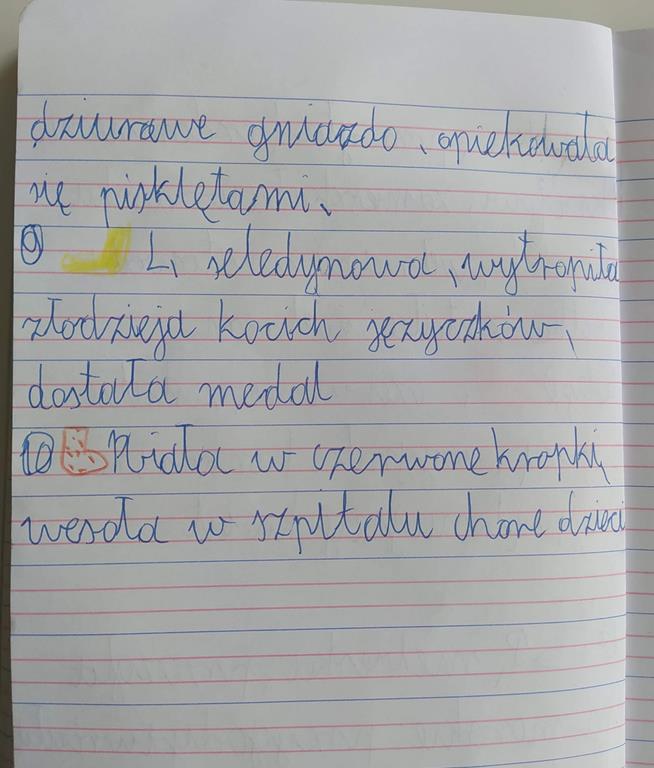 dziurawe gniazdo, opiekowała
się pisklętami.
9 L, seledynowa, wytropiła
złodzieja kocich języczków,
dostała medal
10 Biała w czerwone kropki,
wesoła w szpitalu chore dzieci